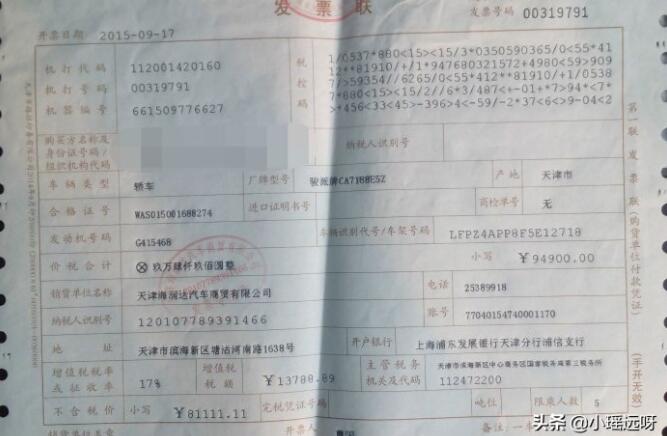 发票联
发票号码 00319791
开票日期 2015-09-17
机打代码 112001420160
机打号码 00319791
机器编号 661509776627
税控码
1/0537*880<15><15/3*0350590365/0<55*41
12**81910/+/1*947680321572+4980<59>909
7/>59354//6265/0<55*412**81910/+1/0538
*7*880<15><15/2//6*3/487<+-01+*7>94*<7*
>*456<33<45>-396>4<-59/-2*37<6<>9-04<2
购买方名称及身份证号码/组织机构代码
纳税人识别号
车辆类型 轿车 厂牌型号 骏派牌CA7188E5Z 产地 天津市
合格证号 WAS015001688274 进口证明书号 商检单号 无
发动机号码 G415468 车辆识别代号/车架号码 LFPZ4APP8F5E12718
价税合计 ⊗玖万肆仟玖佰圆整 小写 ￥94900.00
销货单位名称 天津海润达汽车商贸有限公司 电话 25389918
纳税人识别号 120107789391466 账号 77040154740001170
地址 天津市滨海新区塘沽河南路1638号 开户银行 上海浦东发展银行天津分行浦信支行
增值税税率或征收率 17% 增值税税额 ￥13788.89 主管税务机关及代码 天津市滨海新区中心商务区国家税务局第三税务所 112472200
不含税价 小写 ￥81111.11 完税凭证号码 吨位 限乘人数 5
销货单位盖章 开票人 备注：一车
第一联 发票联（购货单位付款凭证）
（手开无效）
头条 @小瑶远呀